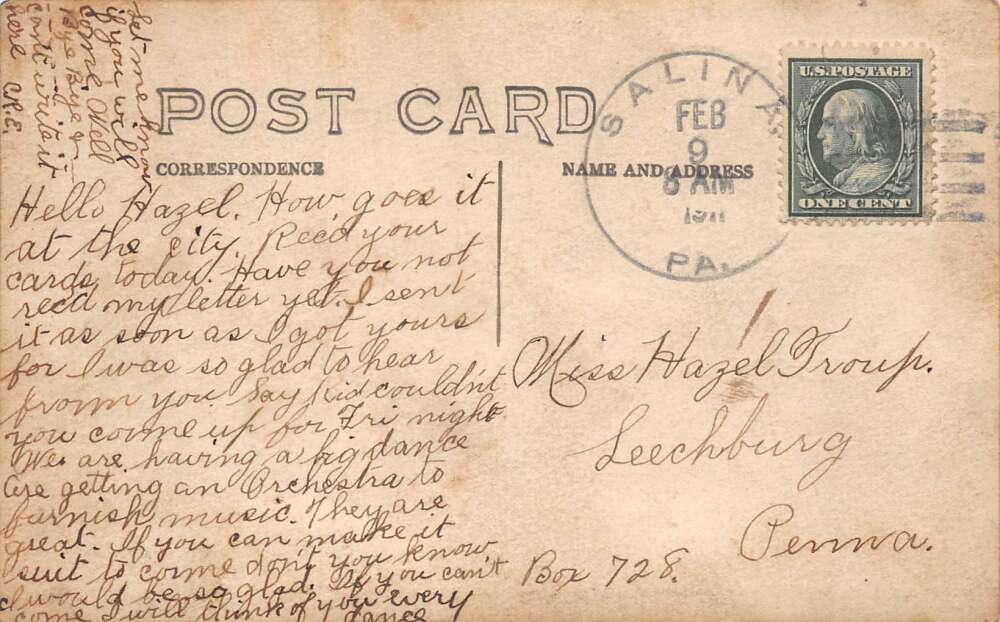 POST CARD
CORRESPONDENCE
NAME AND ADDRESS
SALINA
FEB
9
8 AM
1911
PA.
U.S. POSTAGE
ONE CENT
Hello Hazel. How goes it
at the city. Rec'd your
cards today. Have you not
recd my letter yet. I sent
it as soon as I got yours
for I was so glad to hear
from you. Say Kid couldn't
you come up for Fri night
We are having a big dance
are getting an Orchestra to
furnish music. They are
great. If you can make it
suit to come don't you know
I would be so glad. If you can't
come I will think of you every
dance
Let me know
if you will
come. Well
Bye Bye
cant write it
here C.R.E.
Miss Hazel Troup.
Leechburg
Penna.
Box 728.